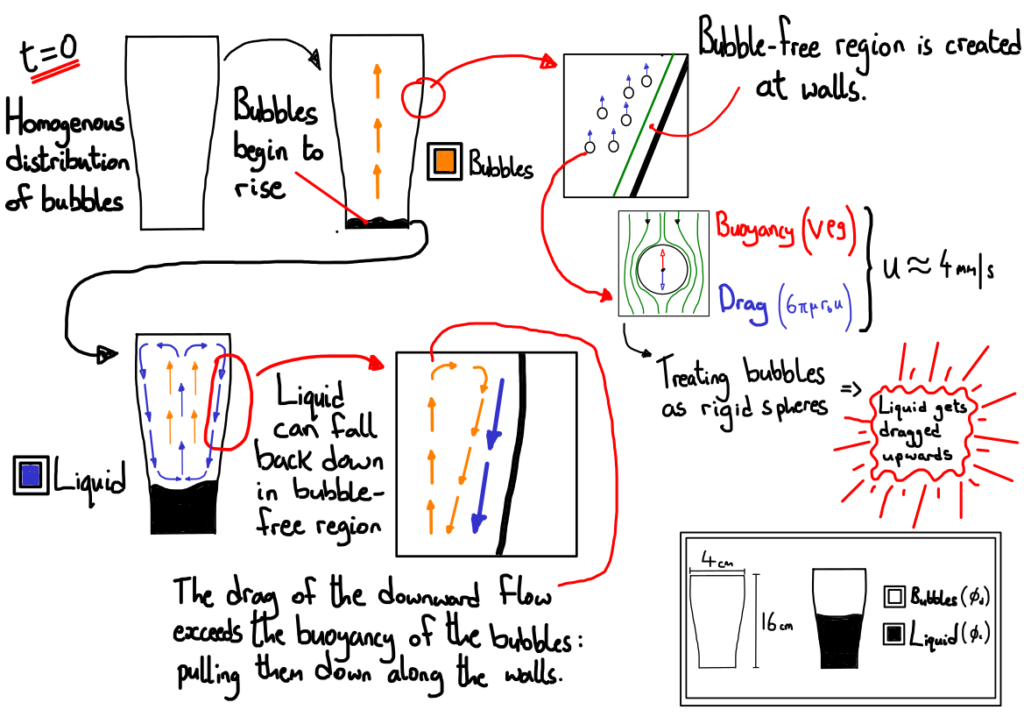 t=0
Homogenous
distribution
of bubbles
Bubbles
begin to
rise
Bubbles
Bubble-free region is created
at walls.
Buoyancy (Vρg)
Drag (6πμr₀u)
u ≈ 4 mm/s
Treating bubbles
as rigid spheres
=>
Liquid gets
dragged
upwards
Liquid
Liquid
can fall
back down
in bubble-
free region
The drag of the downward flow
exceeds the buoyancy of the bubbles:
pulling them down along the walls.
4cm
16cm
Bubbles (ϕd)
Liquid (ϕc)